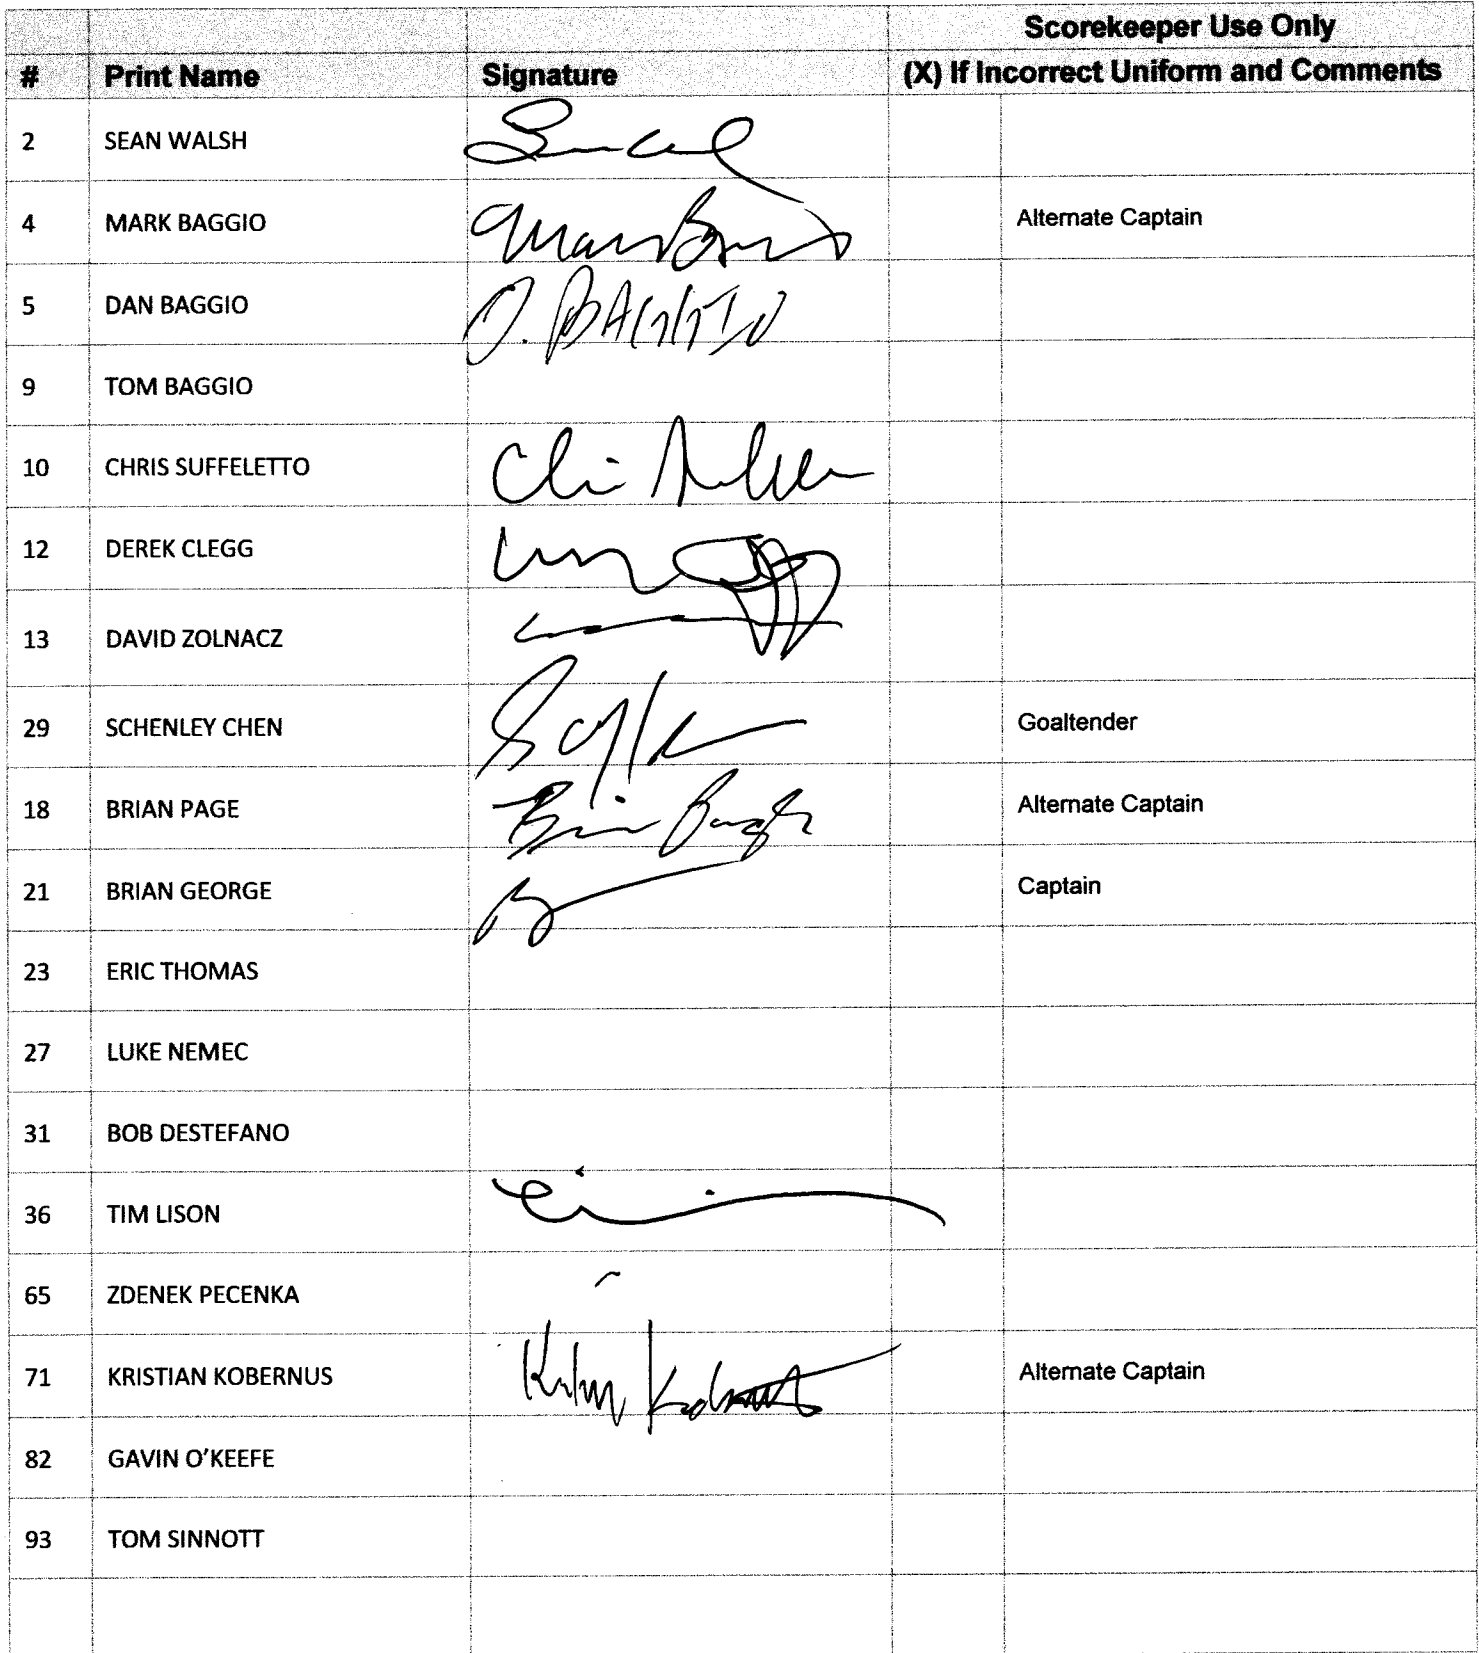 Scorekeeper Use Only
# Print Name Signature (X) If Incorrect Uniform and Comments
2 SEAN WALSH
4 MARK BAGGIO Alternate Captain
5 DAN BAGGIO D. BAGGIO
9 TOM BAGGIO
10 CHRIS SUFFELETTO
12 DEREK CLEGG
13 DAVID ZOLNACZ
29 SCHENLEY CHEN Goaltender
18 BRIAN PAGE Alternate Captain
21 BRIAN GEORGE Captain
23 ERIC THOMAS
27 LUKE NEMEC
31 BOB DESTEFANO
36 TIM LISON
65 ZDENEK PECENKA
71 KRISTIAN KOBERNUS Alternate Captain
82 GAVIN O'KEEFE
93 TOM SINNOTT